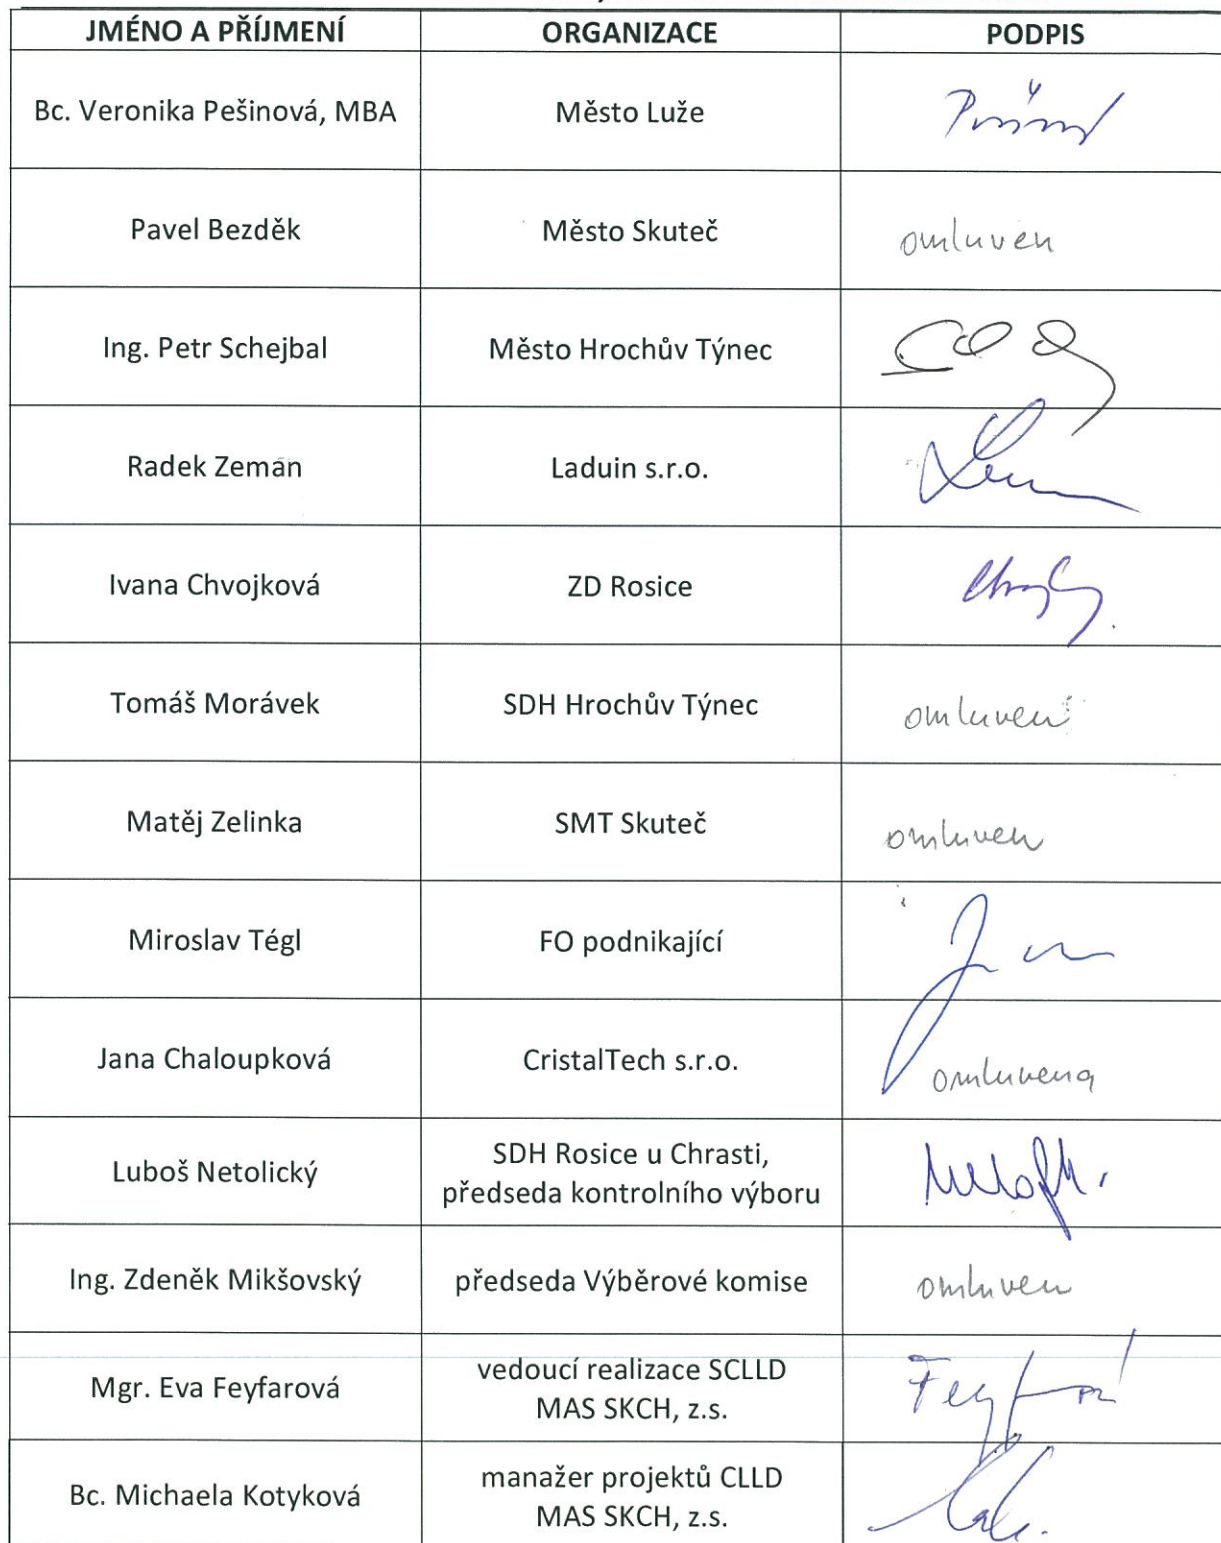 JMÉNO A PŘÍJMENÍ ORGANIZACE PODPIS
Bc. Veronika Pešinová, MBA Město Luže
Pavel Bezděk Město Skuteč omluven
Ing. Petr Schejbal Město Hrochův Týnec
Radek Zeman Laduin s.r.o.
Ivana Chvojková ZD Rosice
Tomáš Morávek SDH Hrochův Týnec omluven
Matěj Zelinka SMT Skuteč omluven
Miroslav Tégl FO podnikající
Jana Chaloupková CristalTech s.r.o. omluvena
Luboš Netolický SDH Rosice u Chrasti,
předseda kontrolního výboru
Ing. Zdeněk Mikšovský předseda Výběrové komise omluven
Mgr. Eva Feyfarová vedoucí realizace SCLLD
MAS SKCH, z.s.
Bc. Michaela Kotyková manažer projektů CLLD
MAS SKCH, z.s.